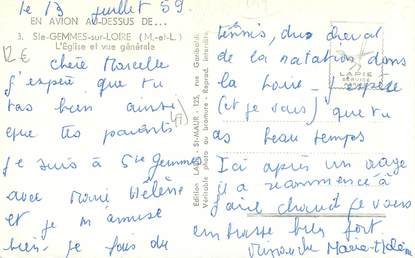 le 13 juillet 59
EN AVION AU-DESSUS DE...
3. Ste-GEMMES-sur-LOIRE (M.-et-L.)
L'Église et vue générale
12€
Chère Marcelle
J'espère que tu
vas bien ainsi
que tes parents
je suis à Ste Gemmes
avec Marie Hélène
et je m'amuse
bien je fais du
Edition LAPIE, St-MAUR - 125, rue Garibaldi
Véritable photo au bromure - Reprod. interdite.
LAPIE
SERVICE
tennis, du cheval
de la natation dans
la Loire J'espère
(et je vous) que tu
as beau temps
Ici après un orage
il a recommencé à
faire chaud je vous
embrasse bien fort
Marie-Hélène